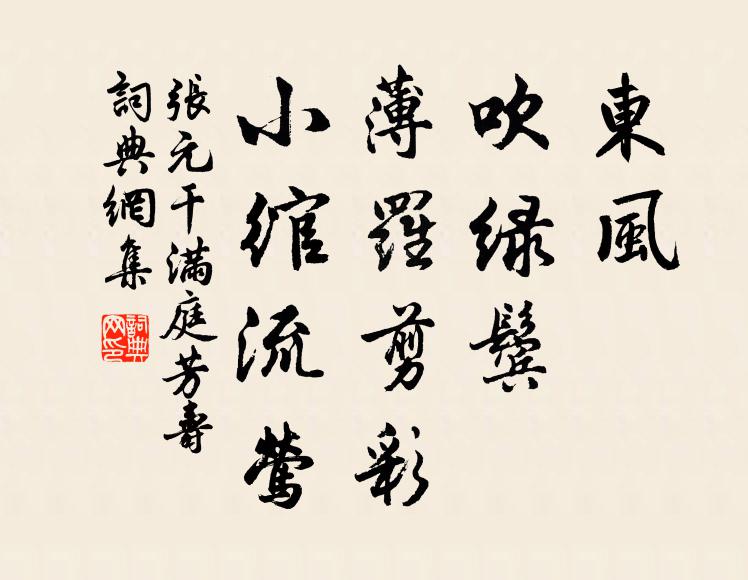 東風
吹绿鬓
薄羅剪彩
小綰流莺
張元干滿庭芳壽
詞典網集
詞典
网印